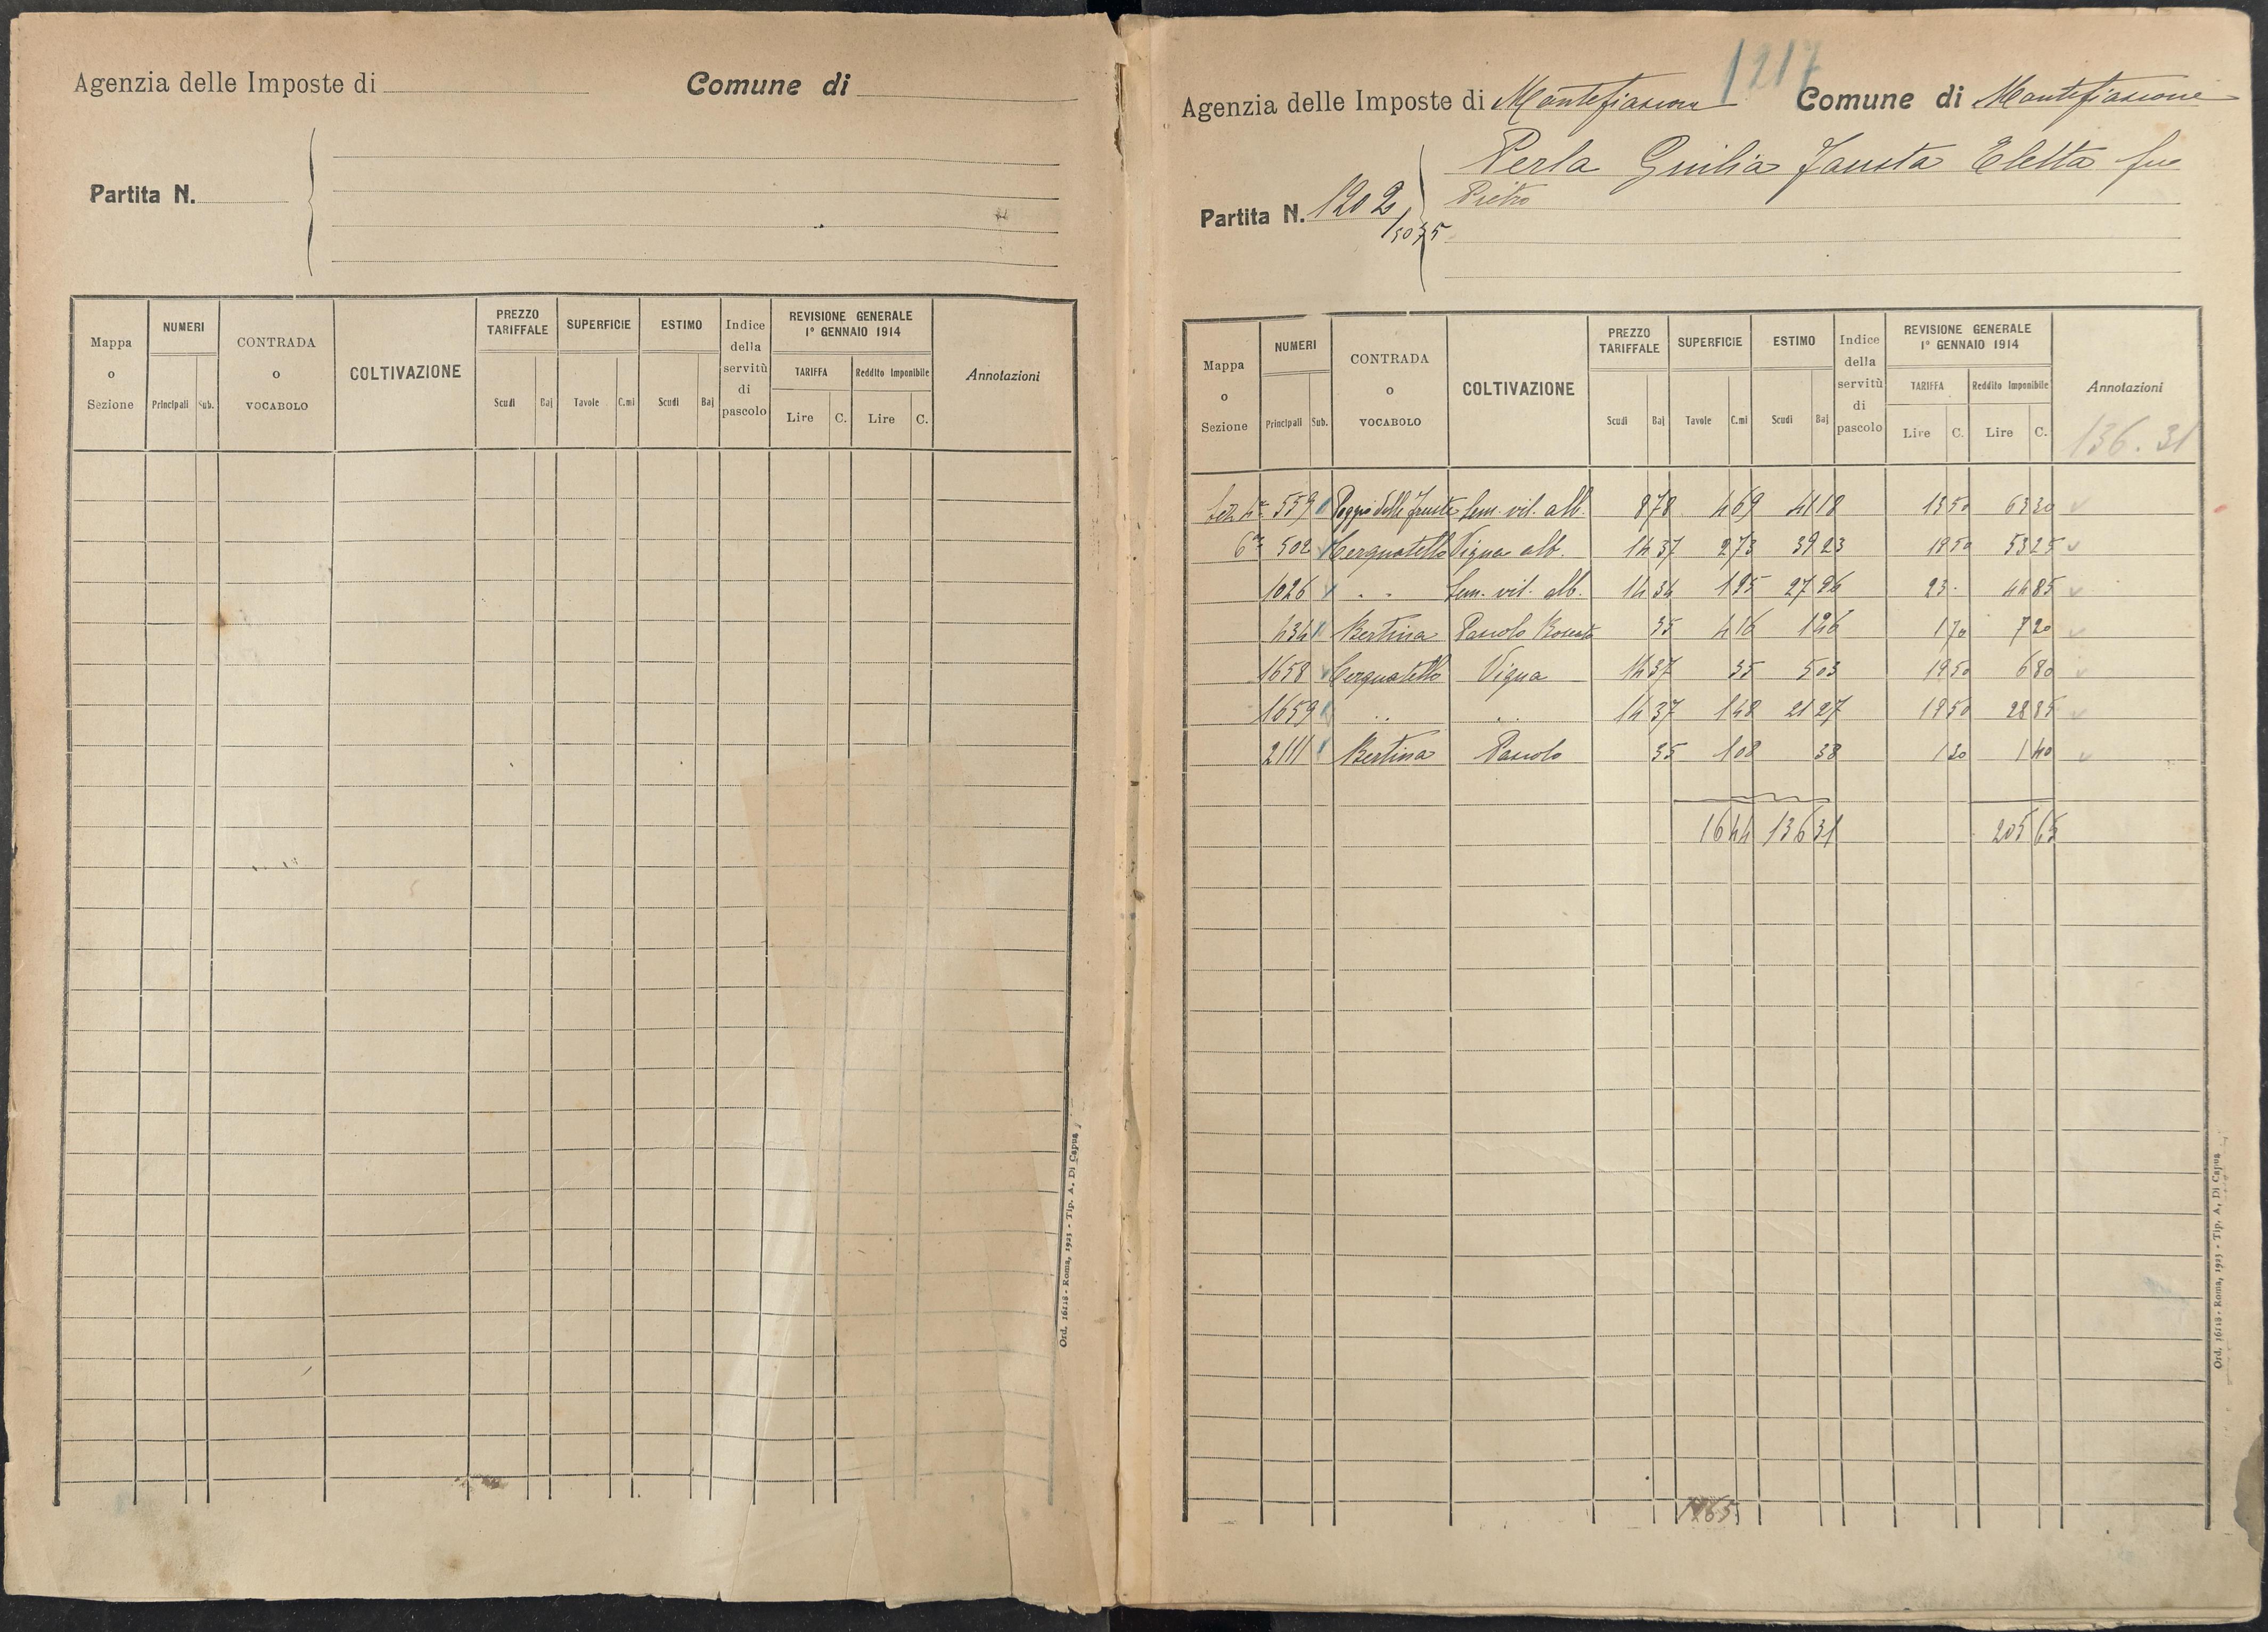 Agenzia delle Imposte di Comune di
Partita N.
Mappa o Sezione NUMERI Principali Sub. CONTRADA o VOCABOLO COLTIVAZIONE PREZZO TARIFFALE Scudi Baj SUPERFICIE Tavole C.mi ESTIMO Scudi Baj Indice della servitù di pascolo REVISIONE GENERALE 1° GENNAIO 1914 TARIFFA Lire C. Reddito Imponibile Lire C. Annotazioni
Ord. 16118 - Roma, 1923 - Tip. A. Di Capua
1217
Agenzia delle Imposte di Montefiascone Comune di Montefiascone
Perla Giulia Fausta Eletta fu
Pietro
Partita N. 1202
Mappa o Sezione NUMERI Principali Sub. CONTRADA o VOCABOLO COLTIVAZIONE PREZZO TARIFFALE Scudi Baj SUPERFICIE Tavole C.mi ESTIMO Scudi Baj Indice della servitù di pascolo REVISIONE GENERALE 1° GENNAIO 1914 TARIFFA Lire C. Reddito Imponibile Lire C. Annotazioni
136.31
Sez. 4ª 559 Poggio delle Sem. vit. alb. 8 78 4 69 41 18 13 50 63 30
6ª 502 Cerquatello Vigna alb. 14 37 2 73 39 23 19 50 53 25
1026 " " Sem. vit. alb. 14 34 1 95 27 96 23 - 44 85
434 Bertina Pascolo Boscato 35 4 16 1 46 1 70 7 20
1658 Cerquatello Vigna 14 37 35 5 03 19 50 6 80
1659 " " 14 37 1 48 21 27 19 50 28 85
2111 Bertina Pascolo 35 1 08 38 1 30 1 40
16 44 136 31 205 65
Ord. 16118 - Roma, 1923 - Tip. A. Di Capua